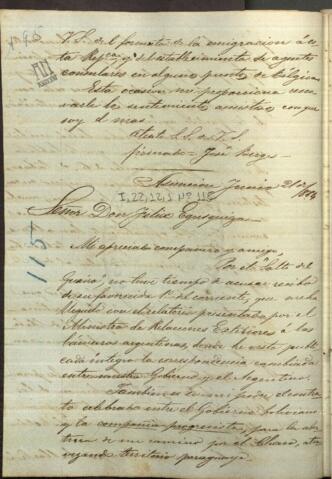 V. S. del fomento de la emigracion á es-
ta Repca y del establecimiento de agentes
consulares en algun punto de Bélgica.
Esta ocasion me proporciona reno-
varle los sentimientos amistosos con que
soy de mas
atento S. S. de V. S.
firmado = José Berges
Asuncion Junio 21 de 1864
I, 22, 12, 1 Nº 115
Señor Don Felix Egusquiza
115
Mi apreciado compatriota y amigo
Por el "Salto del
Guairá" no tuve tiempo de acusar recibo
de su favorecida 1º del corriente, que ha
llegado con el relatorio presentado por el
Ministro de Relaciones Exteriores á las
Cámaras argentinas, donde se está publi-
cada integra la correspondencia cambiada
entre nuestro Gobierno y el Argentino.
Tambien en mi poder el contra-
to celebrado entre el Gobierno boliviano
y la compañia progresista, para la aber-
tura de un camino por el Chaco, atra-
vezando territorio paraguayo.